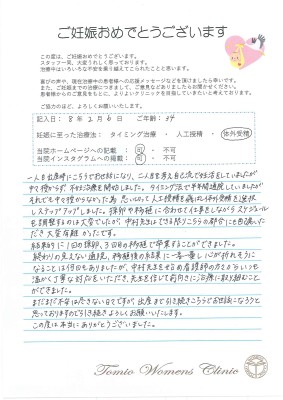 ご妊娠おめでとうございます
この度は、ご妊娠おめでとうございます。
スタッフ一同、大変うれしく思っております。
治療中はいろいろな不安を乗り越えてこられたことと思います。
喜びの声や、現在治療中の患者様への応援メッセージなどを頂けましたら幸いです。
また、ご妊娠までの治療につきまして、ご意見などもお聞かせください。
患者様からのご意見をもとに、よりよいクリニックを目指していきたいと考えております。
ご協力のほど、よろしくお願いいたします。
記入日： 8年 2月 6日 ご年齢： 34
妊娠に至った治療法： タイミング治療 ・ 人工授精 ・ 体外受精
当院ホームページへの記載 ： 可 ・ 不可
当院インスタグラムへの掲載 ： 可 ・ 不可
一人目出産時にこちらでお世話になり、二人目を考え自己流で妊活をしていましたが
中々授からず、不妊治療を開始しました。タイミング法で半年間通院していましたが
それでも中々授からなかった為 思いきって人工授精を飛ばし体外受精を選択
しステップアップしました。採卵や移植に合わせて仕事をしながらスケジュール
を調整するのは大変でしたが、中村先生もできる限りこちらの都合にも合わせていた
だき大変有難かったです。
結果的に1回の採卵、3回目の移植で卒業することができました。
終わりの見えない通院、移植後の結果に一喜一憂し心が折れそうに
なることは何回もありましたが、中村先生をはじめ看護師の方々がいつも
温かく丁寧な対応をいただき、先生を信じて前向きに治療に取り組むこと
ができました。
まだまだ不安は尽きない日々ですが、出産まで引き続きこちらでお世話になろうと
思っておりますので引き続きよろしくお願いいたします。
この度は本当にありがとうございました。
Tomio Womens Clinic